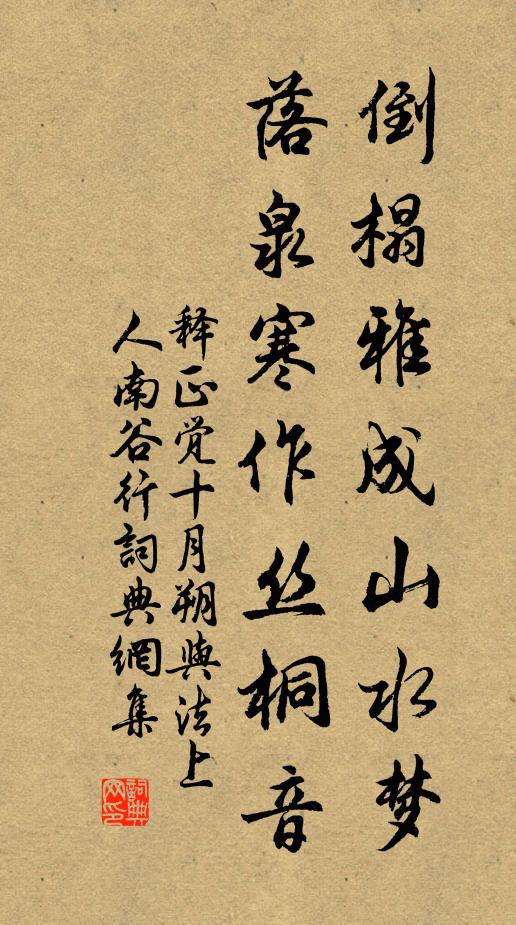 倒榻雅成山水梦
落泉寒作丝桐音
释正觉十月朔与法上
人南谷行词典网集
词典网印